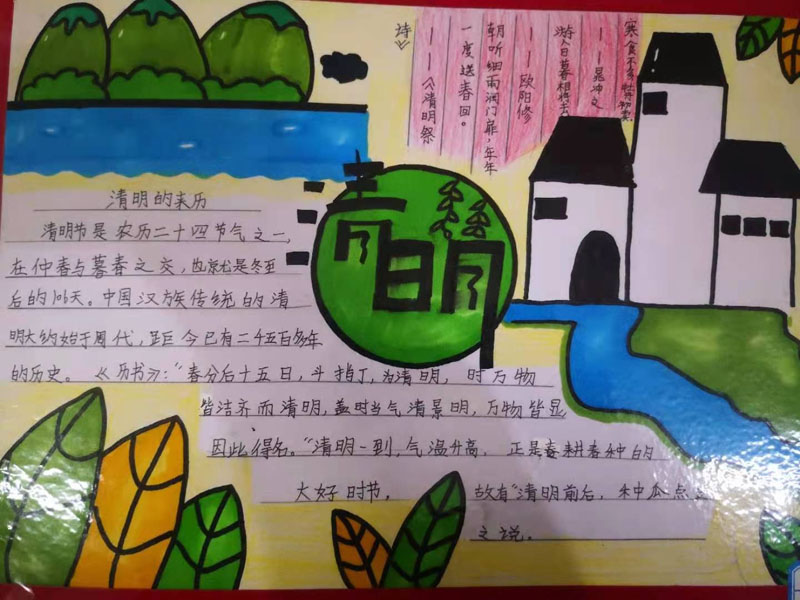 寒食不多时牡丹初卖
——晁冲之
游人日暮相将去
——欧阳修
朝听细雨润门扉，年年
一度送春回。
——《清明祭
诗》
清明
清明的来历
清明节是农历二十四节气之一，
在仲春与暮春之交，也就是冬至
后的106天。中国汉族传统的清
明大约始于周代，距今已有二千五百多年
的历史。《历书》：“春分后十五日，斗指丁，为清明，时万物
皆洁齐而清明，盖时当气清景明，万物皆显
因此得名。“清明一到，气温升高，正是春耕春种的
大好时节，故有“清明前后，种瓜点
之说。